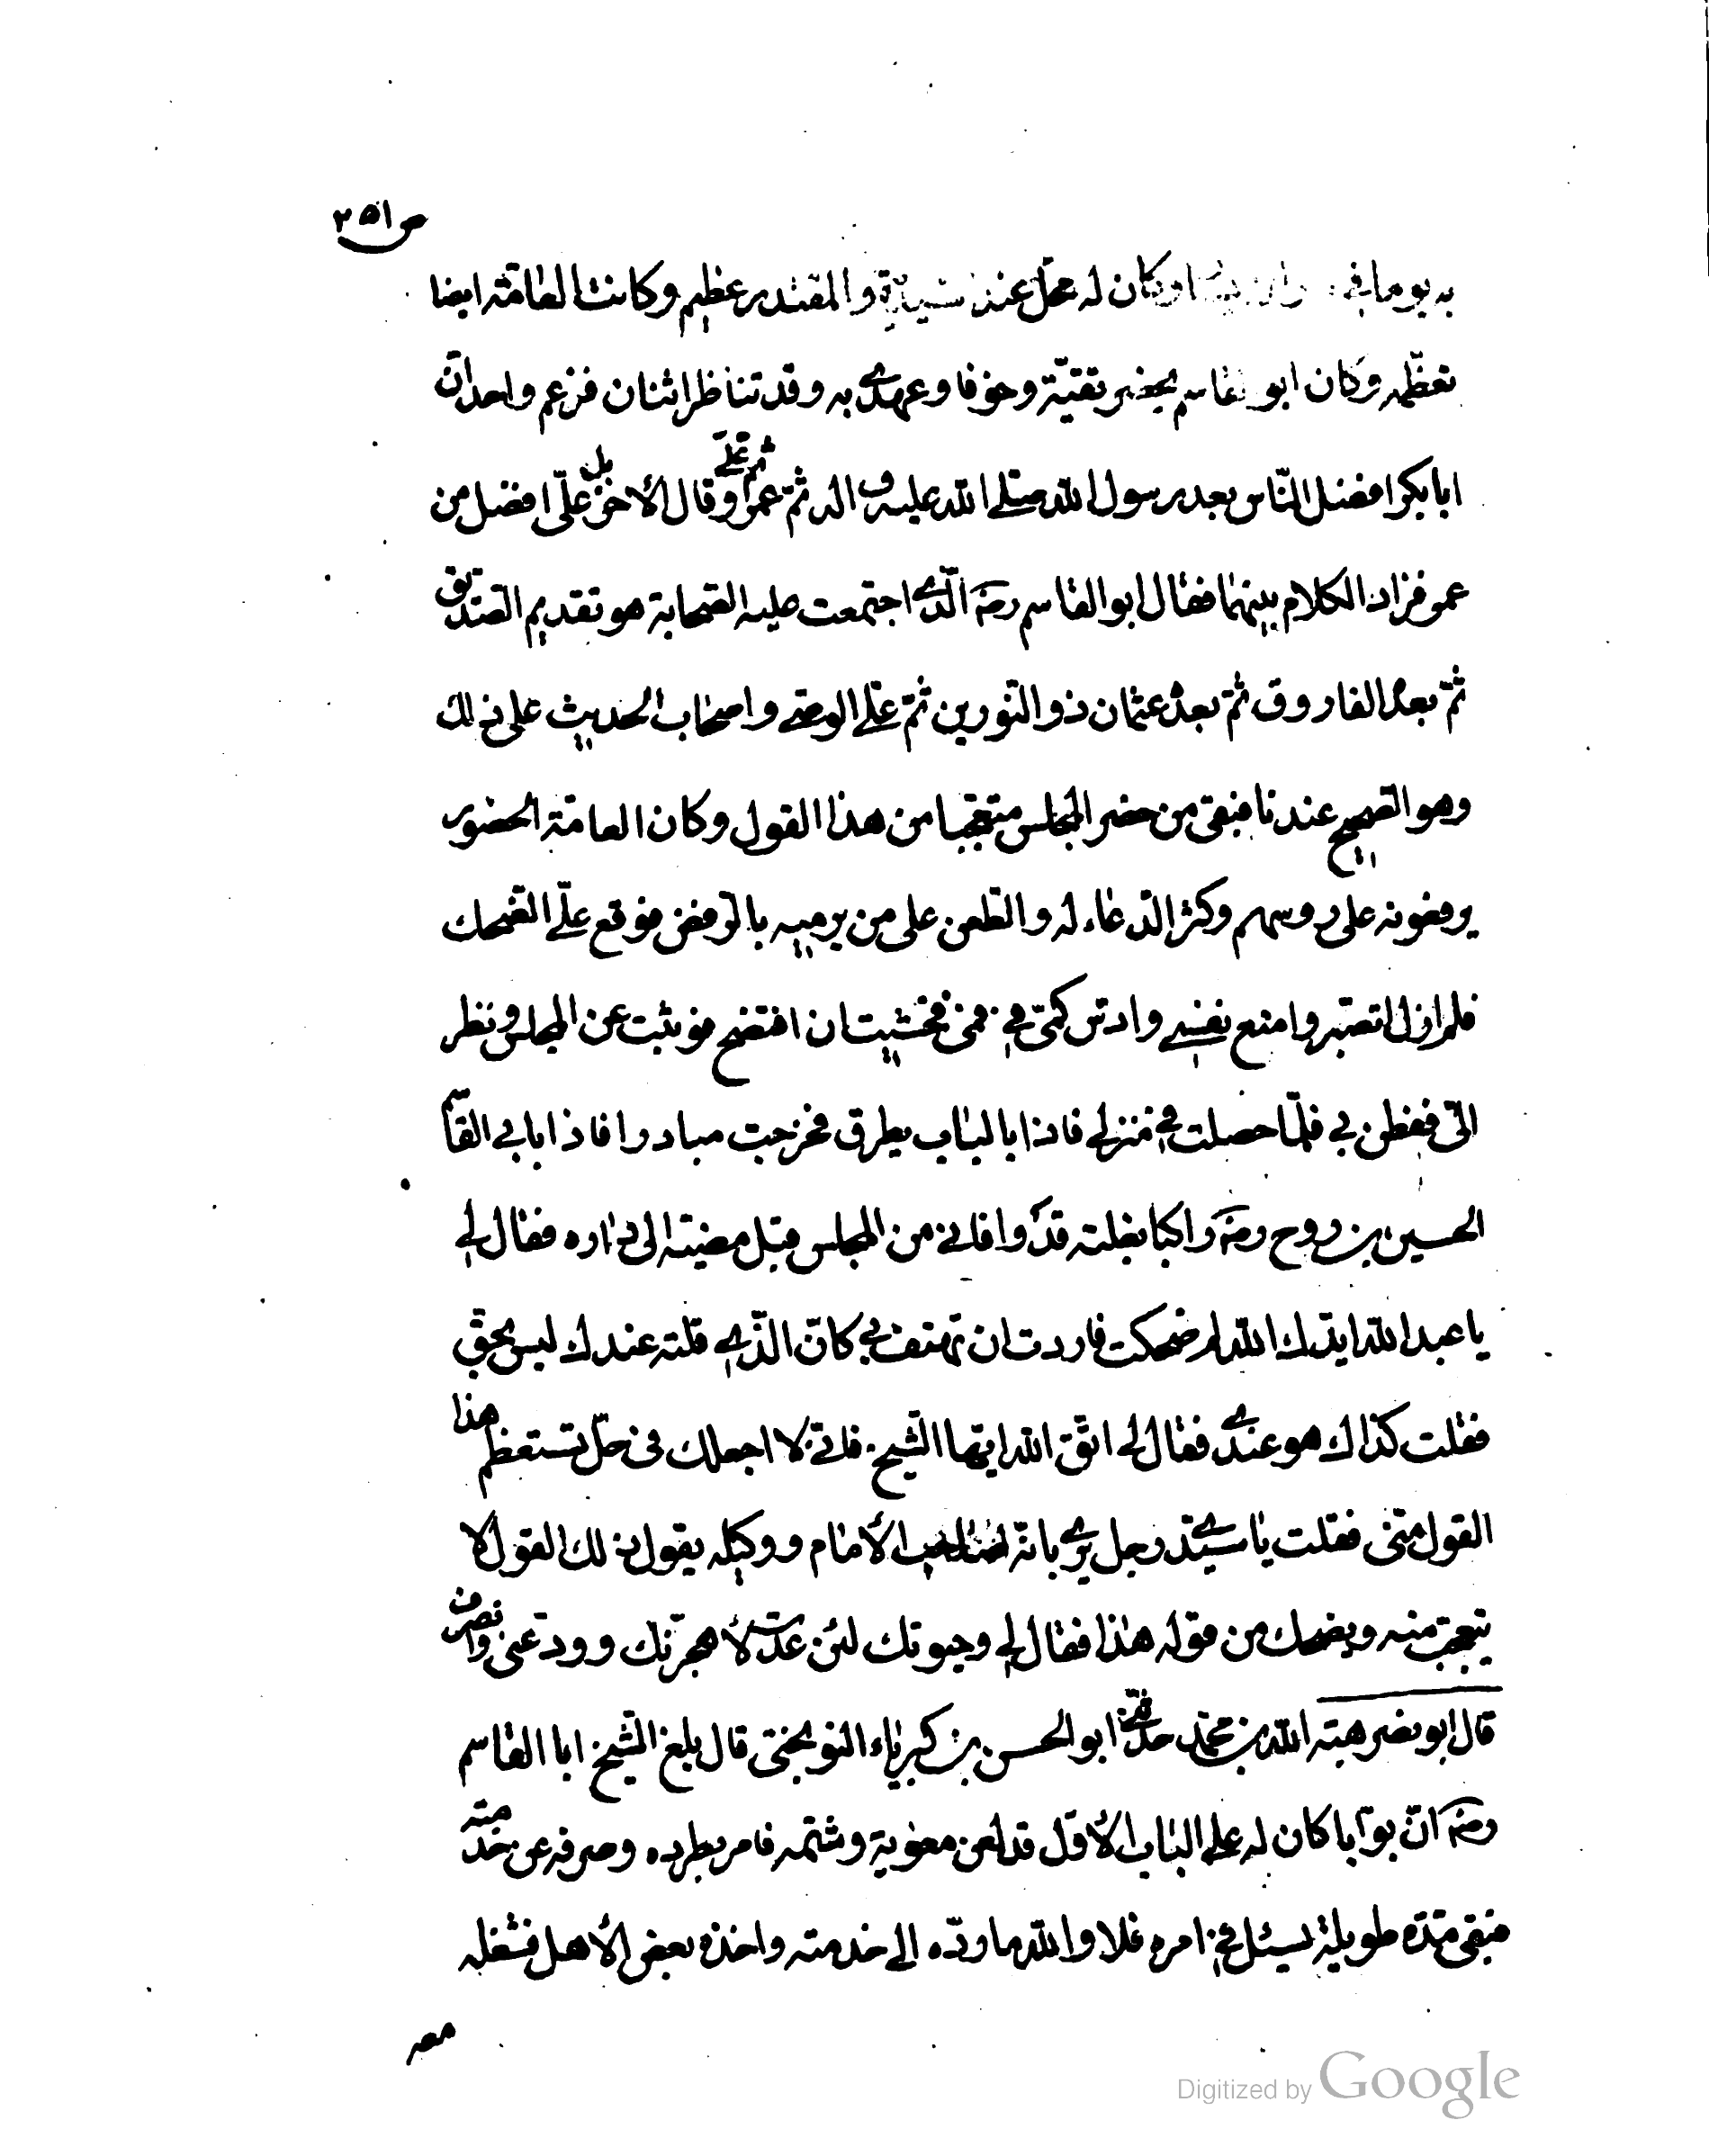 ص ٢٥١
به يوما في وكان له محل عند السيدة والمقتدر عظيم وكانت العامّة ايضا
تعظّمه وكان ابو القاسم يحضر تقيّة وخوفا وعهدي به وقد تناظر اثنان فزعم واحد انّ
ابا بكر افضل النّاس بعد رسول الله صلى الله عليه واله ثمّ عمر ثم علي وقال الأخر بل عليّ افضل من
عمر فزاد الكلام بينهما فقال ابو القاسم رضه الّذي اجتمعت عليه الصّحابة هو تقديم الصّديق
ثمّ بعده الفاروق ثمّ بعده عثمان ذو النّورين ثمّ علي الوصي واصحاب الحديث على ذلك
وهو الصّحيح عندنا فبقى من حضر المجلس متعجّبا من هذا القول وكان العامّة الحضور
يرفعونه على روسهم وكثر الدّعاء له والطّعن على من يرميه بالرّفض فوقع علىّ الضّحك
فلم ازل اتصبّر وامنع نفسي وادسّ كمّي في فمي فخشيت ان افتضح فوثبت عن المجلس ونظر
الىّ ففطن بي فلمّا حصلت في منزلي فاذا بالباب يطرق فخرجت مبادرا فاذا بابي القاسم
الحسين بن روح رضه راكبا بغلته قد وافاني من المجلس قبل مضيّه الى داره فقال لي
يا عبد الله ايّدك الله لم ضحكت فاردت ان تهتف بي كانّ الّذي قلته عندك ليس بحقّ
فقلت كذاك هو عندي فقال لي اتّق الله ايّها الشّيخ فانّي لا اجعلك في حلّ تستعظم هذا
القول منّي فقلت يا سيّدي رجل يري بانّه صاحب الأمام ووكيله يقول ذلك القول لا
يتعجّب منه ويضحك من قوله هذا فقال لي وحيوتك لئن عدت لأهجرنّك وودّعني وانصرف
قال ابو نصر هبة الله بن محمّد حدّثني ابو الحسن بن كبرياء النوبختي قال بلغ الشّيخ ابا القاسم
رضه انّ بوّابا كان له على الباب الأوّل قد لعن معوية وشتمه فامر بطرده وصرفه عن خدمته
فبقى مدّة طويلة يسئل في امره فلا والله ما ردّه الى خدمته واخذه بعض الأهل فشغله
معه
Digitized by Google